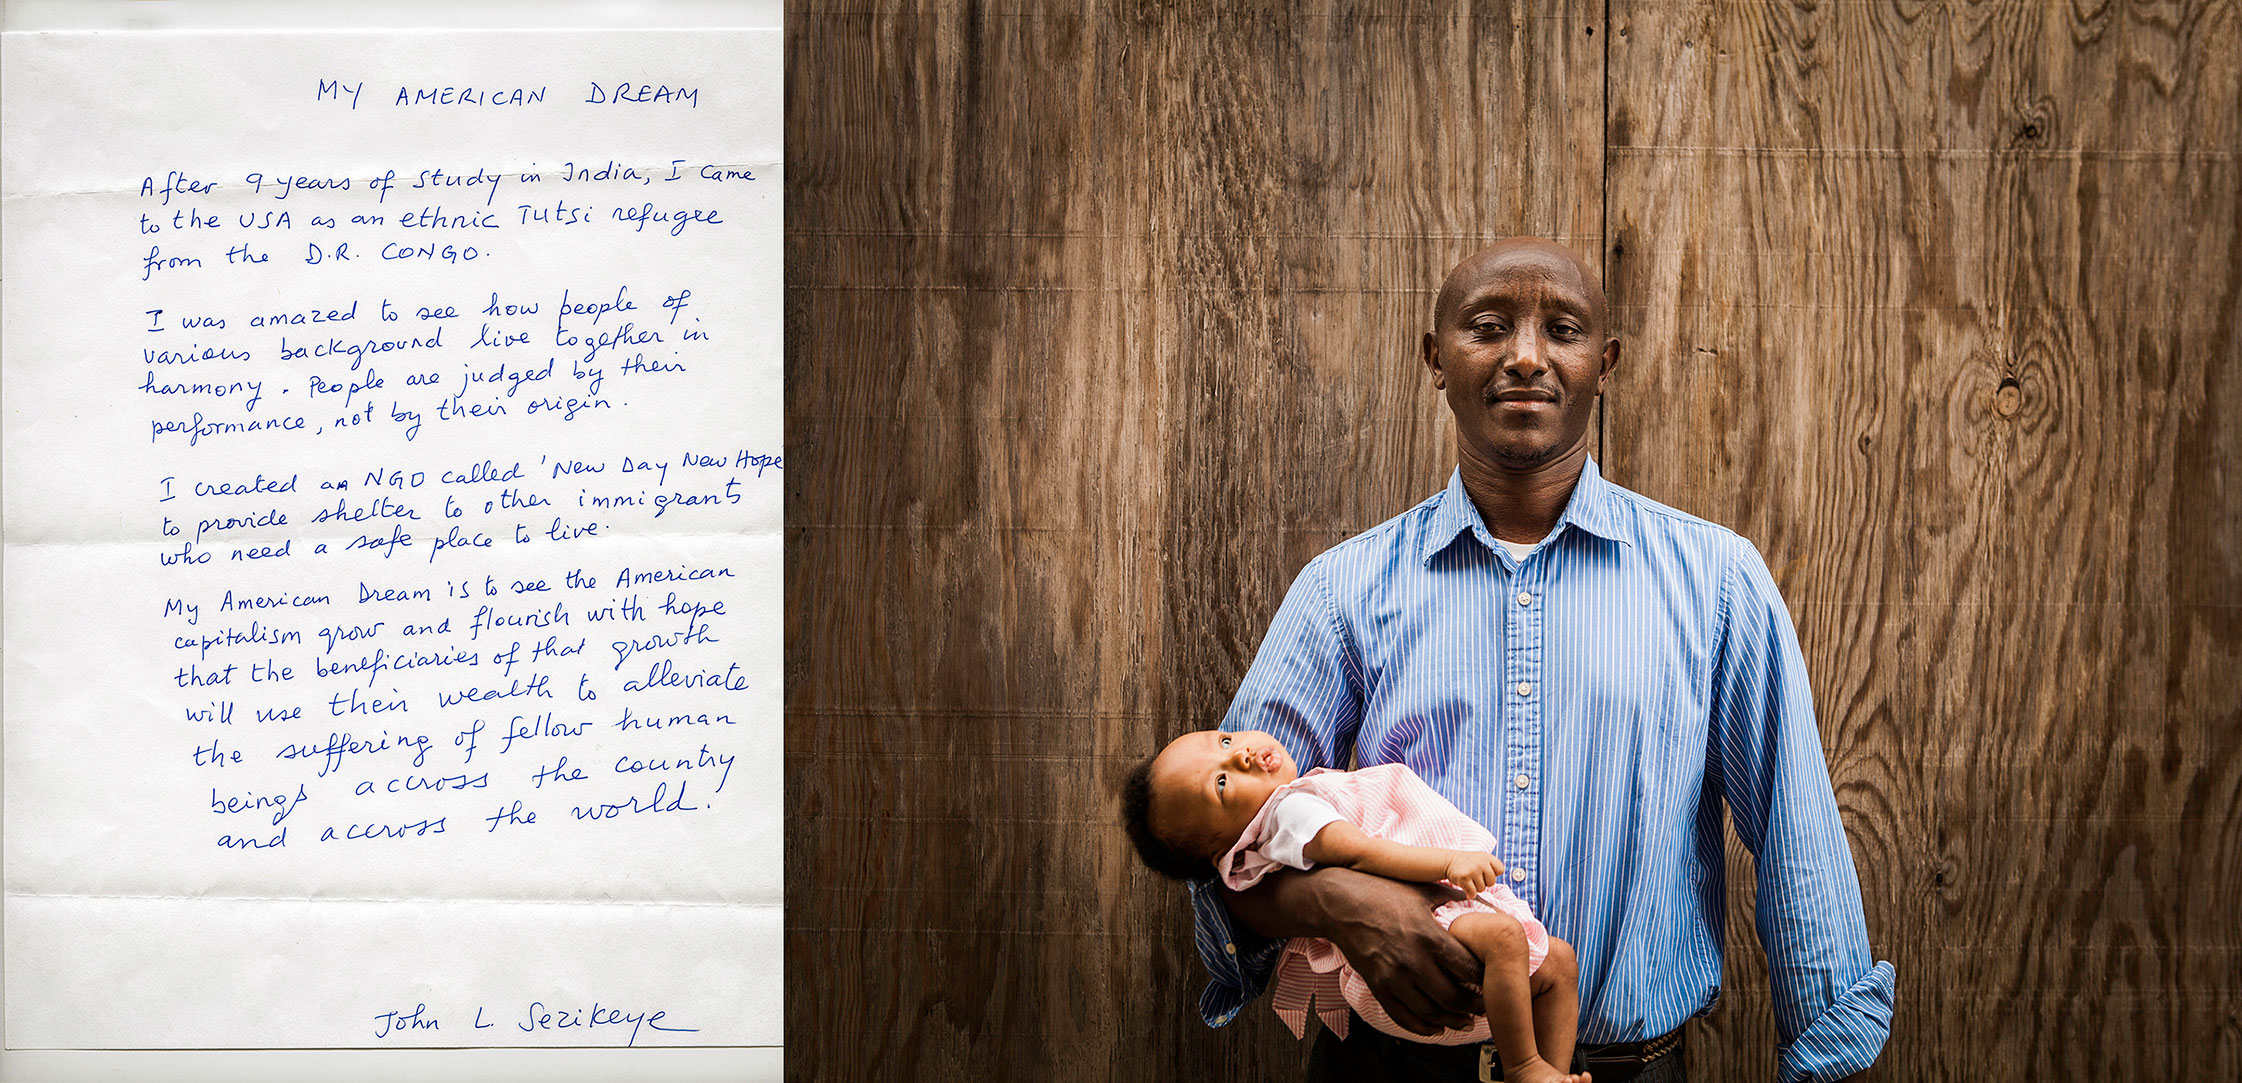 MY AMERICAN DREAM
After 9 years of study in India, I came
to the USA as an ethnic Tutsi refugee
from the D.R. CONGO.
I was amazed to see how people of
various background live together in
harmony. People are judged by their
performance, not by their origin.
I created an NGO called 'New Day New Hope
to provide shelter to other immigrants
who need a safe place to live.
My American Dream is to see the American
capitalism grow and flourish with hope
that the beneficiaries of that growth
will use their wealth to alleviate
the suffering of fellow human
beings accross the country
and accross the world.
John L. Sezikeye